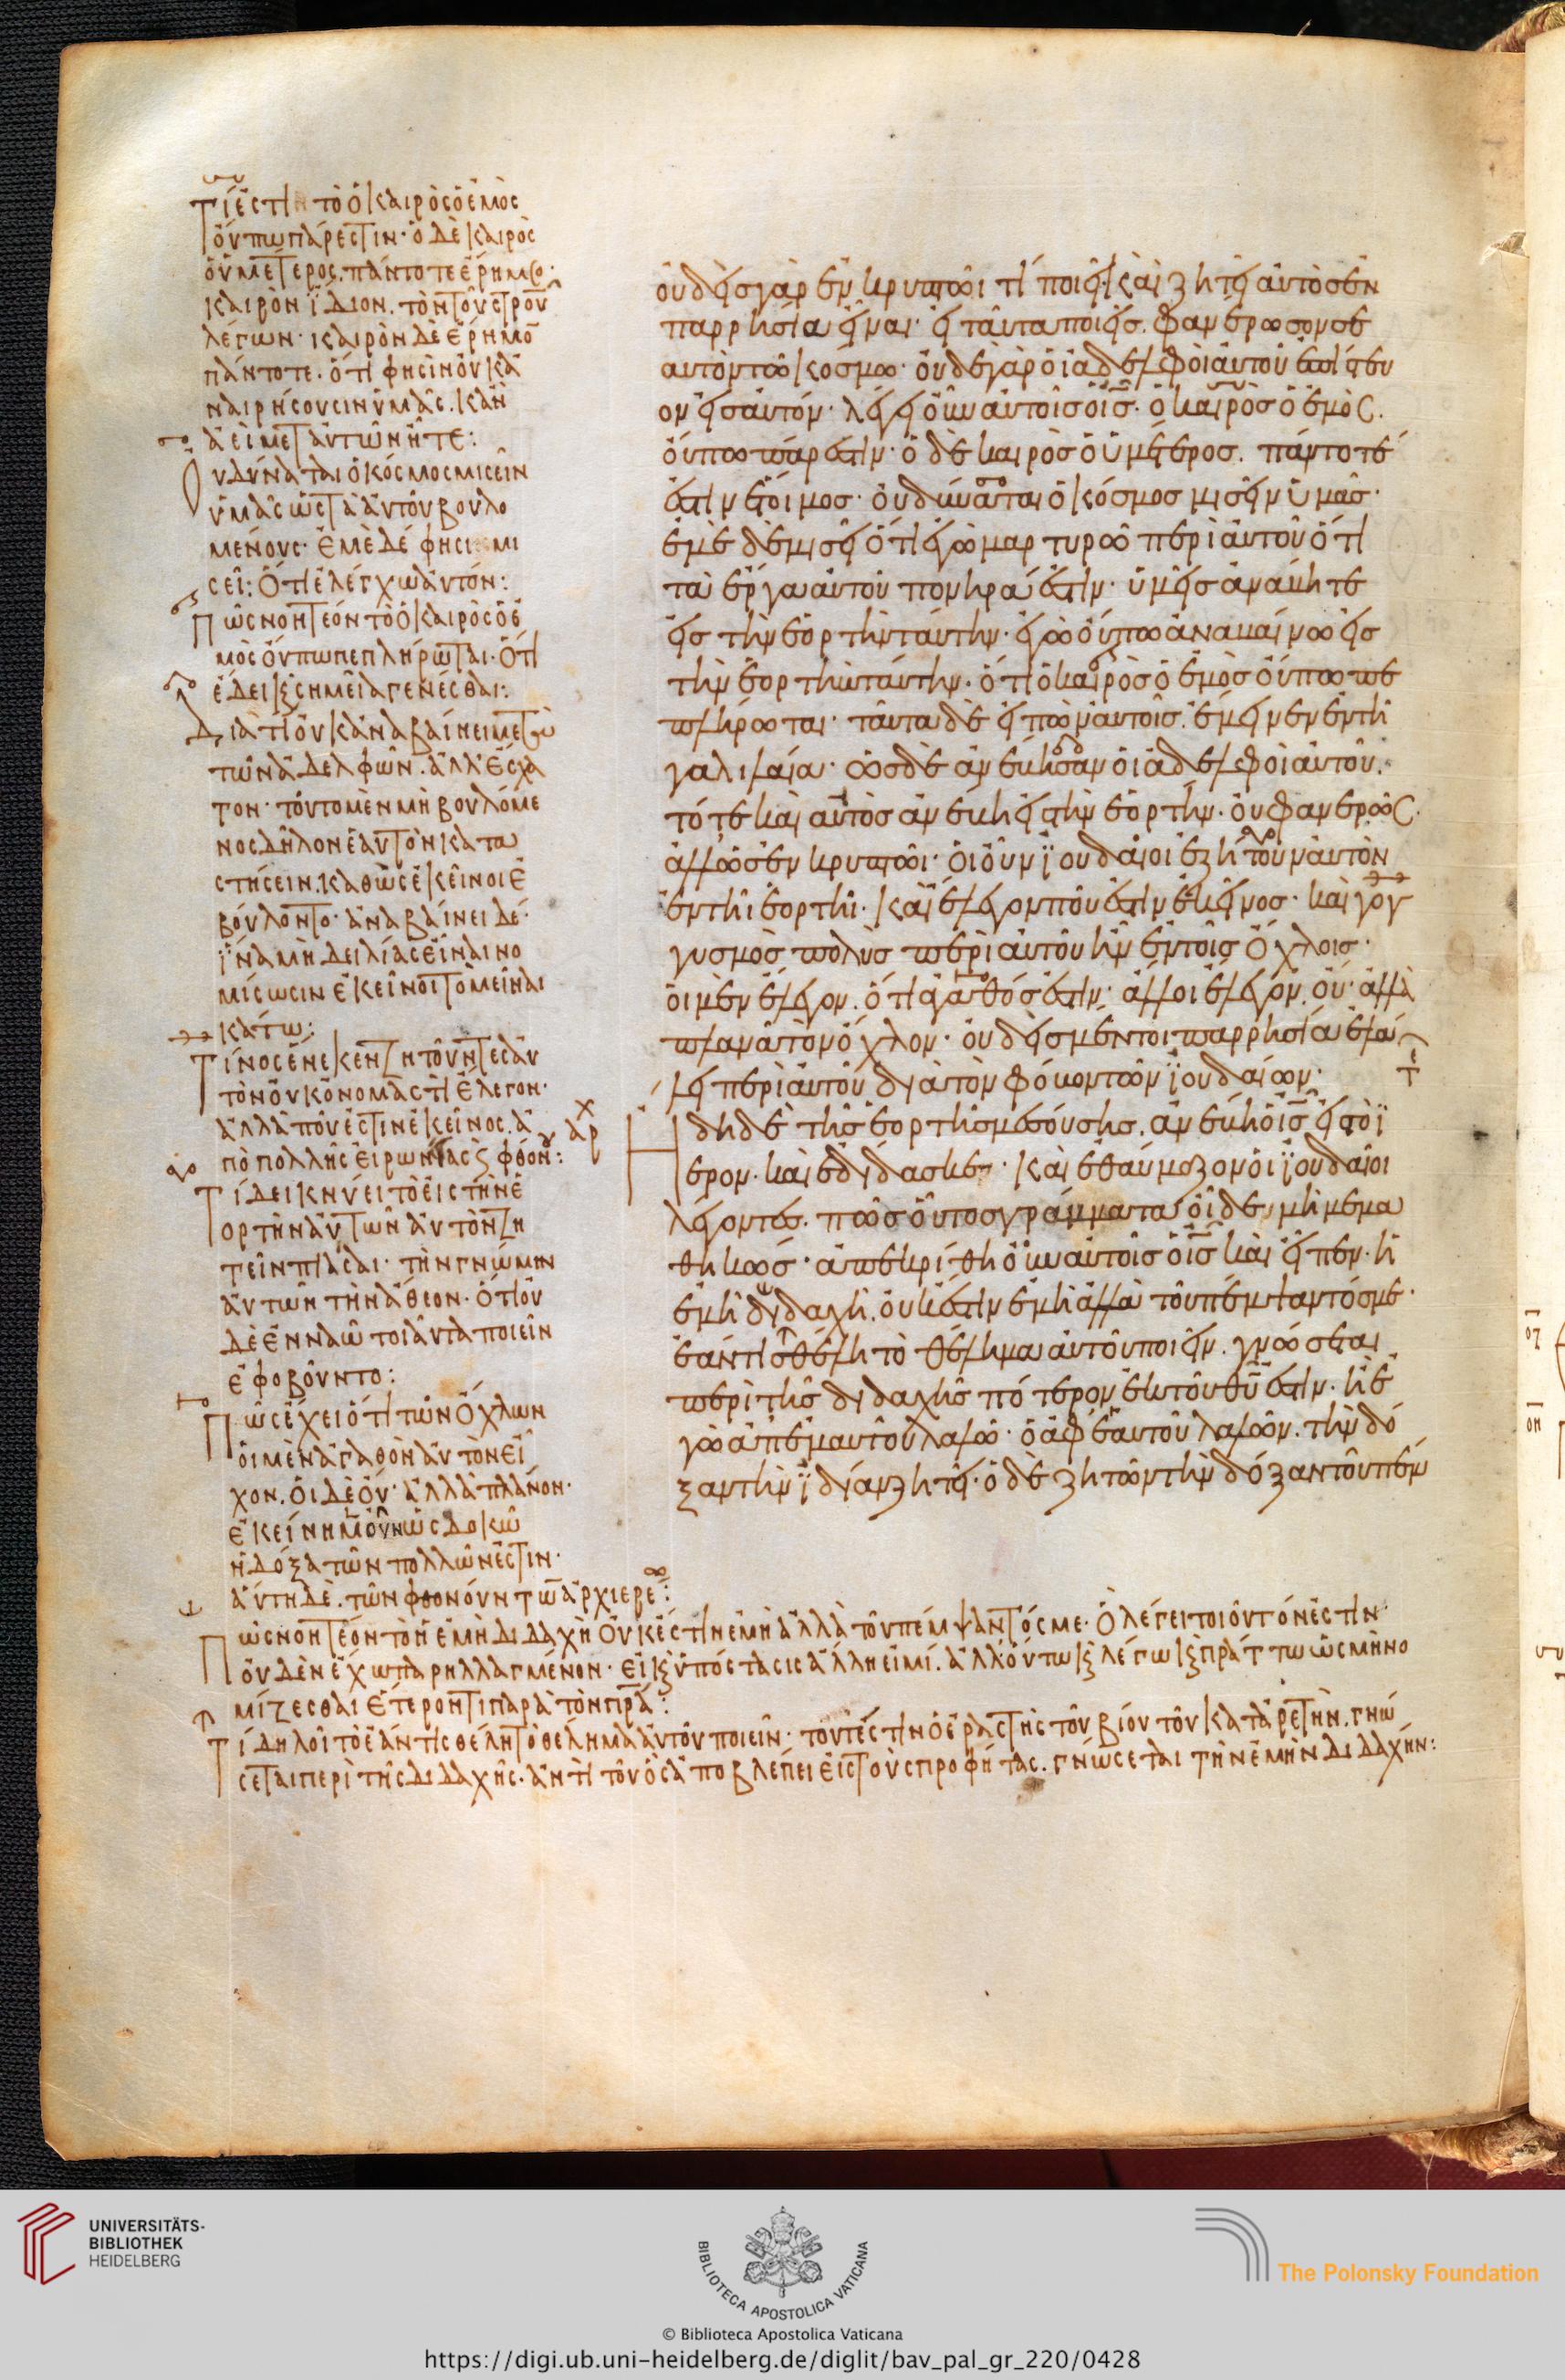 Τί ἐστιν τὸ ὁ καιρὸς ὁ ἐμὸς
οὔπω πάρεστιν· ὁ δὲ καιρὸς
ὁ ὑμέτερος πάντοτε
καιρὸν ἴδιον. τὸν τοῦ στροῦ
λέγων· καιρὸν δὲ
πάντοτε. ὅτι φησὶν οὐκ ἀ
ναιρήσουσιν ὑμᾶς. κἂν
ἀεὶ μετ αὐτῶν ἦτε:
Οὐ δύναται ὁ κόσμος μισεῖν
ὑμᾶς ὡς τὰ αὐτοῦ βουλο
μένους· ἐμὲ δέ φησι μι
σεῖ: ὅτι ἐλέγχω αὐτόν:
Πῶς νοητέον τὸ ὁ καιρὸς ὁ ἐ
μὸς οὔπω πεπλήρωται· ὅτι
ἔδει ϗ σημεῖα γενέσθαι:
Διατί οὐκ ἀναβαίνει με
τῶν ἀδελφῶν. ἀλλ' ἔσχα
τον· τοῦτο μὲν μὴ βουλόμε
νος δῆλον ἑαυτὸν κατα
στήσειν. καθὼς ἐκεῖνοι ἐ
βούλοντο· ἀναβαίνει δέ·
ἵνα μὴ δειλίας εἶναι νο
μίσωσιν ἐκεῖνοι τὸ μεῖναι
κάτω:
Τίνος ἕνεκεν ζητοῦντες αὐ
τὸν οὐκ ὀνομαστὶ ἔλεγον·
ἀλλὰ ποῦ ἐστιν ἐκεῖνος. ἀ
πὸ πολλῆς εἰρωνίας ϗ φθόνου:
Τί δεικνύει τὸ εἰς τὴν ἑ
ορτὴν αὐτῶν αὐτὸν ζη
τεῖν πιάσαι· τὴν γνώμην
αὐτῶν τὴν ἄθεον· ὅτι οὐ
δὲ ἐν ναῶ τοιαῦτα ποιεῖν
ἐφοβοῦντο:
Πῶς ἔχει ὅτι τῶν ὄχλων
οἱ μὲν ἀγαθὸν αὐτὸν εἶ
χον. οἱ δὲ οὔ· ἀλλὰ πλάνον·
ἐκείνη μὲν οὖν ὡς δοκῶ
ἡ δόξα τῶν πολλῶν ἐστιν·
αὕτη δὲ. τῶν φθονούντων ἀρχιερέων:
Πῶς νοητέον τὸ ἡ ἐμὴ διδαχὴ οὐκ ἔστιν ἐμὴ ἀλλὰ τοῦ πέμψαντός με· ὃ λέγει τοιοῦτόν ἐστιν·
οὐδὲν ἔχω παρηλλαγμένον· εἰ ϗ ὑπόστασις ἄλλη εἰμί. ἀλλ' οὕτω ϗ λέγω ϗ πράττω ὡς μὴ νο
μίζεσθαι ἕτερόν τι παρὰ τὸν πρα:
Τί δηλοῖ τὸ ἐάν τις θέλη τὸ θέλημα αὐτοῦ ποιεῖν· τουτέστιν ὁ ἐραστὴς τοῦ βίου τοῦ κατ ἀρετὴν. γνώ
σεται περὶ τῆς διδαχῆς· ἀντὶ τοῦ ὃς ἀποβλέπει εἰς τοὺς προφήτας. γνώσεται τὴν ἐμὴν διδαχήν:
οὐδεὶς γὰρ ἐν κρυπτῶι τί ποιεῖ· καὶ ζητεῖ αὐτὸς ἐν
παρρησία εἶναι· εἰ ταῦτα ποιεῖς. φανέρωσον σε
αυτὸν τῶ κόσμω· οὐδὲ γὰρ οἱ ἀδελφοὶ αὐτοῦ ἐπίστευ
ον εἰς αὐτόν· λέγει οὖν αὐτοῖς ὁ ις. ὁ καιρὸς ὁ ἐμὸς.
οὔπω πάρεστιν· ὁ δὲ καιρὸς ὁ ὑμέτερος. πάντοτέ
ἐστιν ἕτοιμος· οὐ δύναται ὁ κόσμος μισεῖν ὑμᾶς·
ἐμὲ δὲ μισεῖ ὅτι ἐγὼ μαρτυρῶ περὶ αὐτοῦ ὅτι
τὰ ἔργα αὐτοῦ πονηρά ἐστιν· ὑμεῖς ἀνάβητε
εἰς τὴν ἑορτὴν ταύτην· ἐγὼ οὔπω ἀναβαίνω εἰς
τὴν ἑορτὴν ταύτην· ὅτι ὁ καιρὸς ὁ ἐμὸς οὔπω πε
πλήρωται· ταῦτα δὲ εἰπὼν αὐτοῖς. ἔμεινεν ἐν τῆ
γαλιλαία· ὡς δὲ ἀνέβησαν οἱ ἀδελφοὶ αὐτοῦ.
τότε καὶ αὐτὸς ἀνέβη εἰς τὴν ἑορτήν. οὐ φανερῶς.
ἀλλ' ὡς ἐν κρυπτῶι· οἱ οὖν ϊουδαῖοι ἐζήτουν αὐτὸν
ἐν τῆι ἑορτῆι· καὶ ἔλεγον ποῦ ἐστιν ἐκεῖνος· καὶ γογ
γυσμὸς πολὺς περὶ αὐτοῦ ἦν ἐν τοῖς ὄχλοις·
οἱ μὲν ἔλεγον. ὅτι ἀγαθός ἐστιν· ἄλλοι ἔλεγον. οὔ· ἀλλὰ
πλανᾶ τὸν ὄχλον· οὐδεὶς μέντοι παρρησία ἐλά
λει περὶ αὐτοῦ διὰ τὸν φόβον τῶν ϊουδαίων·
Ηδη δὲ τῆς ἑορτῆς μεσούσης. ἀνέβη ὁ ις εἰς τὸ ϊ
ερον. καὶ ἐδίδασκεν· καὶ ἐθαύμαζον οἱ ϊουδαῖοι
λέγοντες. πῶς οὗτος γράμματα οἶδε· μὴ μεμα
θηκώς· ἀπεκρίθη οὖν αὐτοῖς ὁ ις καὶ εἶπεν· ἡ
ἐμὴ διδαχὴ. οὐκ ἔστιν ἐμὴ ἀλλὰ τοῦ πέμψαντός με·
ἐάν τις θέλη τὸ θέλημα αὐτοῦ ποιεῖν. γνώσεται
περὶ τῆς διδαχῆς πότερον ἐκ τοῦ θυ ἐστιν· ἢ ἐ
γὼ ἀπ' ἐμαυτοῦ λαλῶ· ὁ ἀφ' ἑαυτοῦ λαλῶν. τὴν δό
ξαν τὴν ϊδίαν ζητεῖ· ὁ δὲ ζητῶν τὴν δόξαν τοῦ πέμ
UNIVERSITÄTS-
BIBLIOTHEK
HEIDELBERG
BIBLIOTECA APOSTOLICA VATICANA
The Polonsky Foundation
© Biblioteca Apostolica Vaticana
https://digi.ub.uni-heidelberg.de/diglit/bav_pal_gr_220/0428